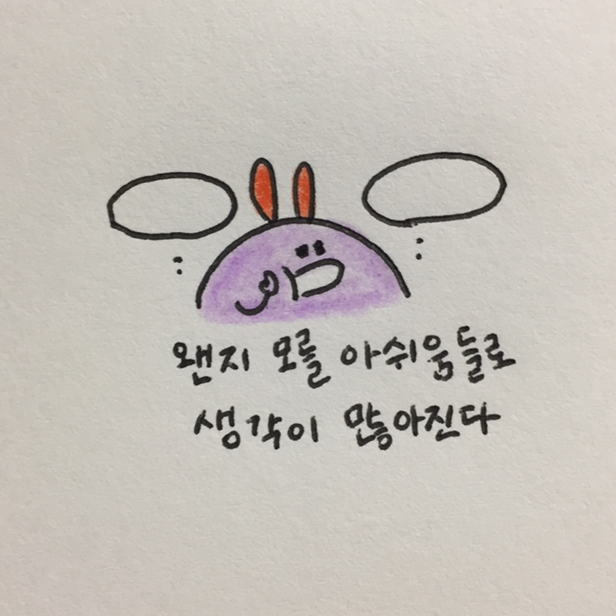 왠지 모를 아쉬움들로
생각이 많아진다